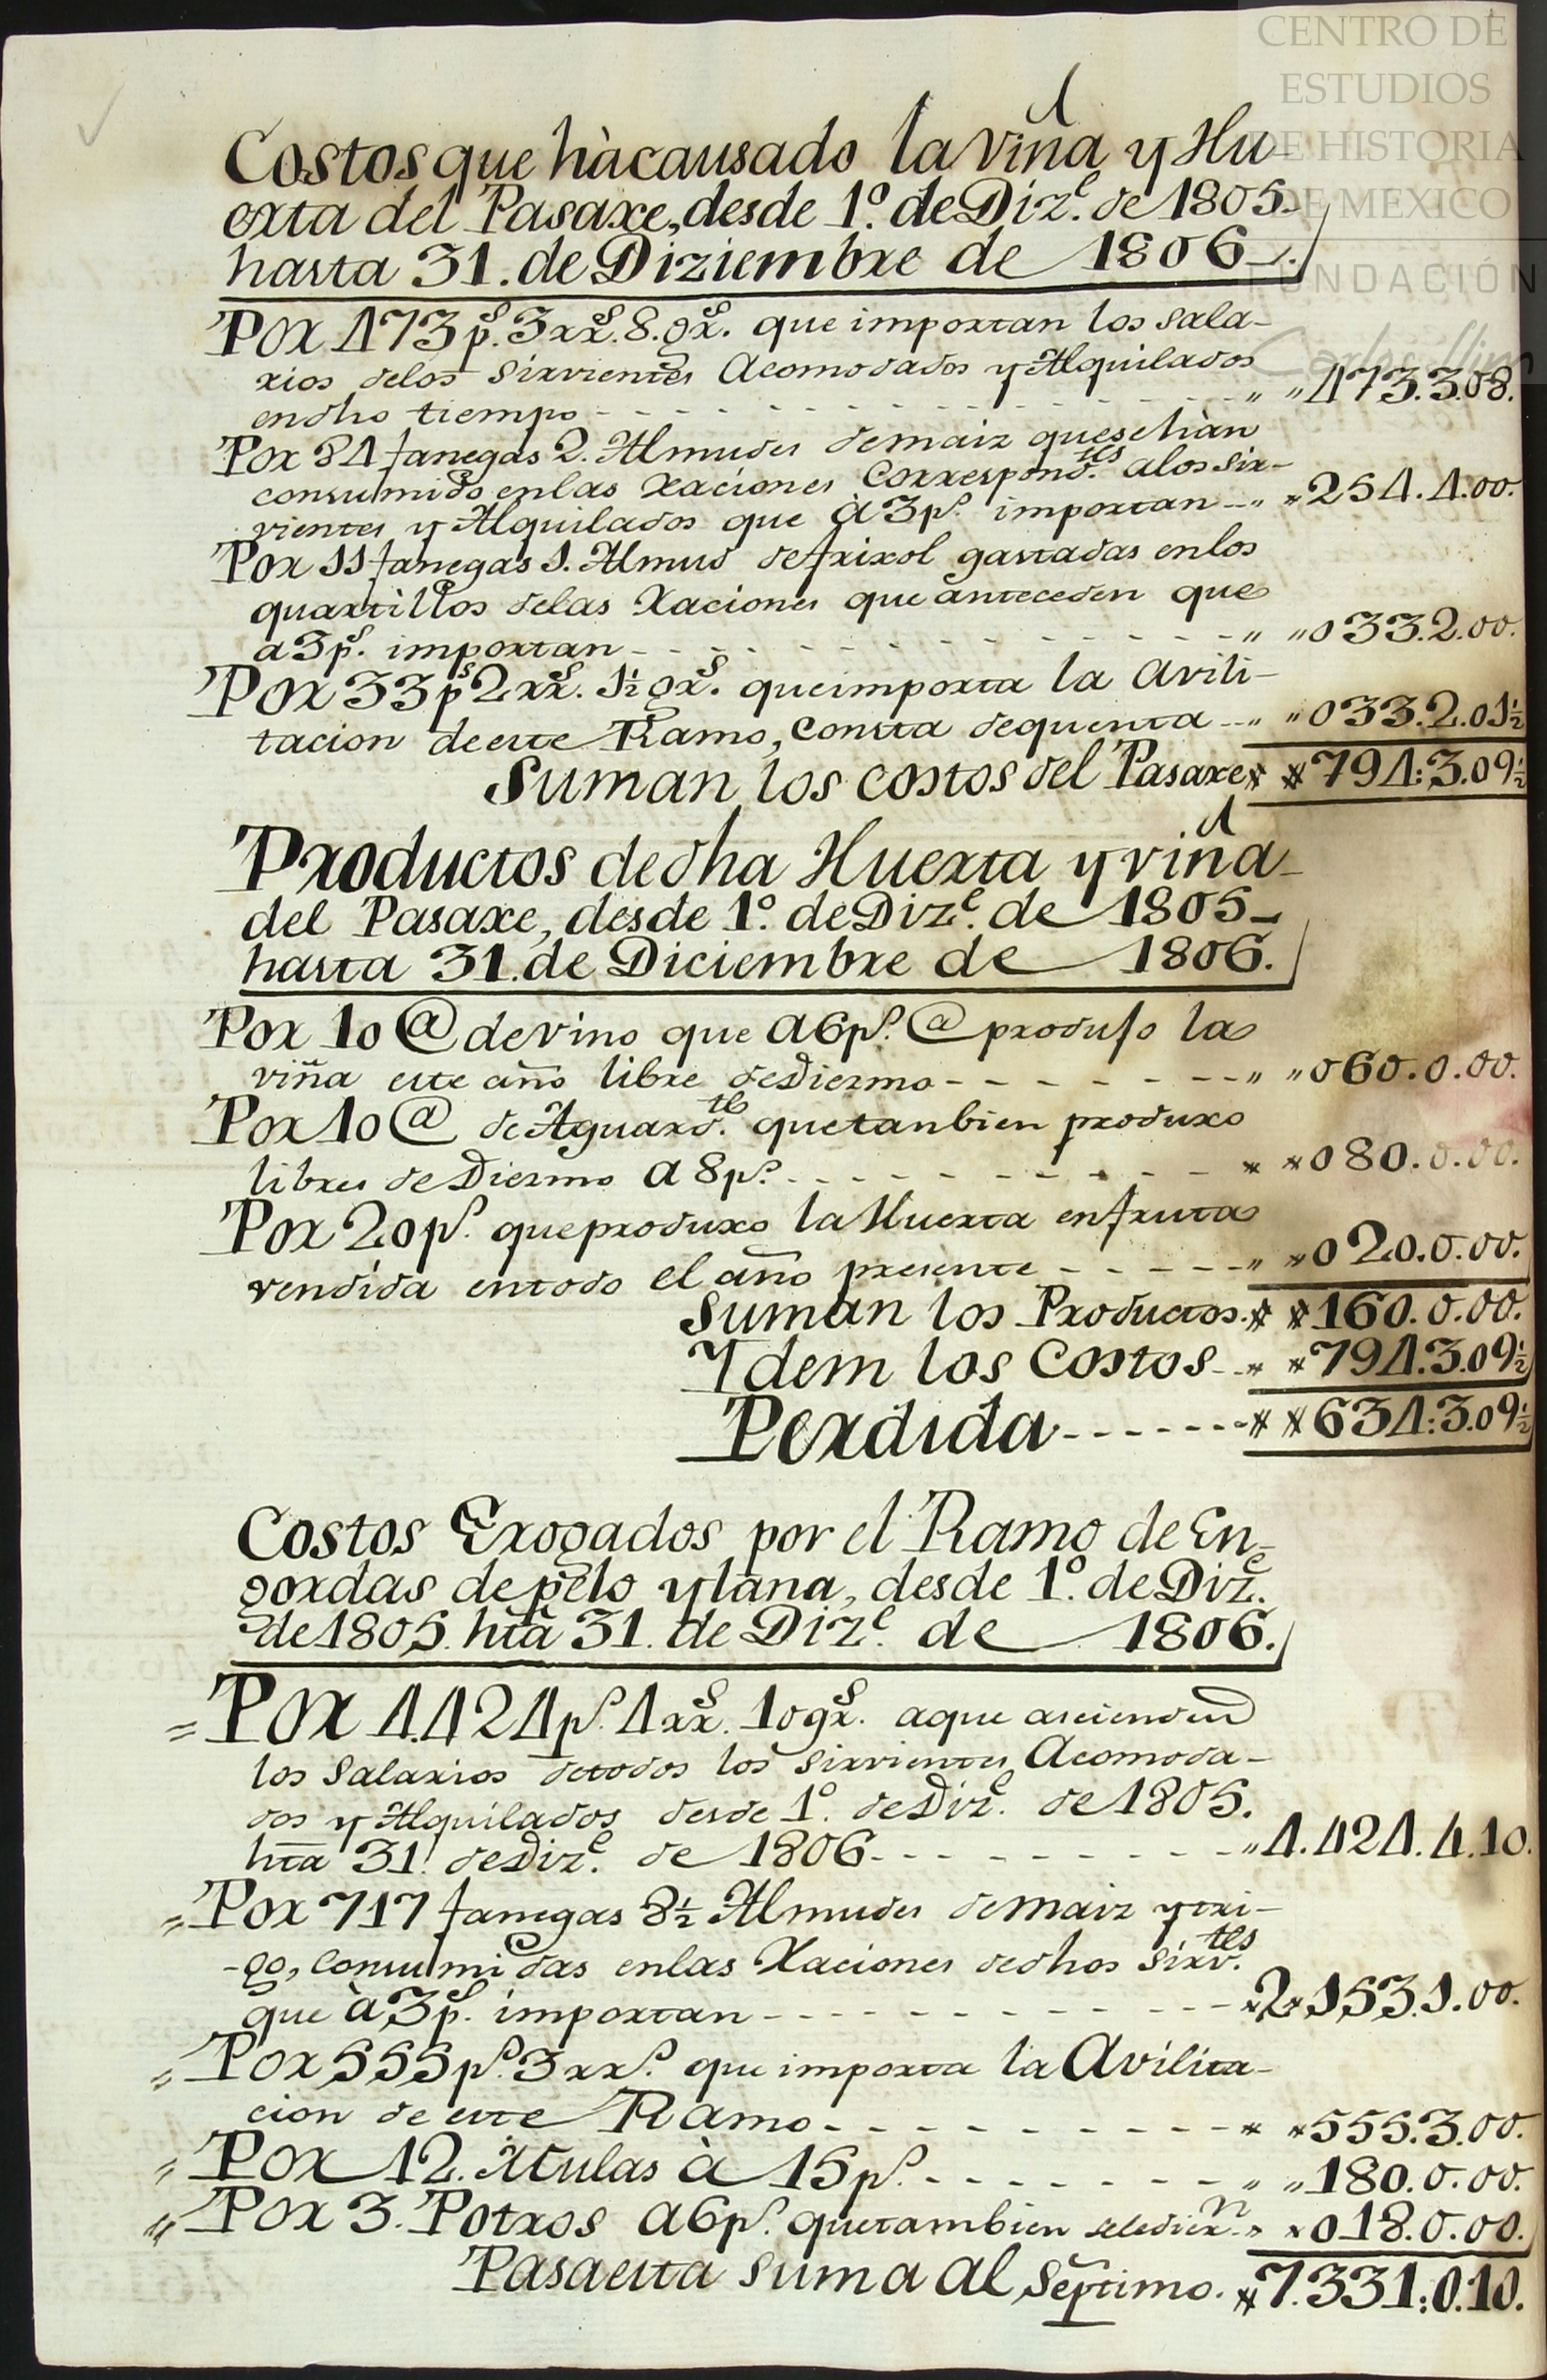 CENTRO DE
ESTUDIOS
DE HISTORIA
DE MEXICO
FUNDACIÓN
Carlos Slim
Costos que hà causado la viña y Hu-
erta del Pasaxe, desde 1º. de Dizᵉ. de 1805-
hasta 31. de Diziembre de 1806-.
Por 473 pˢ. 3 rrˢ. 8. grˢ. que importan los sala-
rios delos Sirvientes Acomodados y Alquilados
en dho tiempo - - - - - - - - - - " " 473.3.08.
Por 84 fanegas 2. Almudes demaiz quese hàn
consumido enlas Raciones Correspondᵗᵉˢ. alos Sir-
vientes y Alquilados que à 3 pˢ. importan - - " " 254.4.00.
Por 11 fanegas 1. Almud defrixol gastadas enlos
quartillos delas Raciones que anteceden que
a 3 pˢ. importan - - - - - - - - - - " " 033.2.00.
Por 33 pˢ 2 rrˢ. 1½ grˢ. queimporta la avili-
tacion deeste Ramo, Consta dequenta - - " " 033.2.01½
Suman los costos del Pasaxe " " 794:3.09½
Productos dedha Huerta y viña-
del Pasaxe, desde 1º. de Dizᵉ. de 1805-
hasta 31. de Diciembre de 1806.
Por 10 @ de vino que a 6 pˢ. @ produjo la
viña este año libre deDiezmo - - - - - - - - " " 060.0.00.
Por 10 @ de Aguardᵗᵉ. quetanbien produxo
libres de Diezmo a 8 pˢ. - - - - - - - - - " " 080.0.00.
Por 20 pˢ. queproduxo la Huerta enfruta
vendida entodo el año presente - - - - - " " 020.0.00.
Suman los Productos. " " 160.0.00.
Ydem los Costos - - " " 794.3.09½
Perdida - - - - - - - " " 634:3.09½
Costos Erogados por el Ramo de En-
gordas de pelo y lana, desde 1º. de Dizᵉ.
de 1805. hta 31. de Dizᵉ. de 1806.
= Por 4.424 pˢ. 4 rrˢ. 10 grˢ. aque ascienden
los Salarios detodos los Sirvientes Acomoda-
dos y Alquilados desde 1º. deDizᵉ. de 1805.
hta 31. deDizᵉ. de 1806 - - - - - - - - - " 4.424.4.10.
= Por 717 fanegas 8½ Almudes demaiz y tri-
-go, consumidas enlas Raciones dedhos Sirvᵗᵉˢ.
que à 3 pˢ. importan - - - - - - - - - - - " 2"153.1.00.
= Por 555 pˢ. 3 rrˢ. que importa la Avilita-
cion de este Ramo - - - - - - - - - " " 555.3.00.
= Por 12. Mulas à 15 pˢ. - - - - - - - " " 180.0.00.
" Por 3. Potros a 6 pˢ. quetambien sele dierⁿ. " " 018.0.00.
Pasaesta suma al Septimo. " 7.331:0.10.